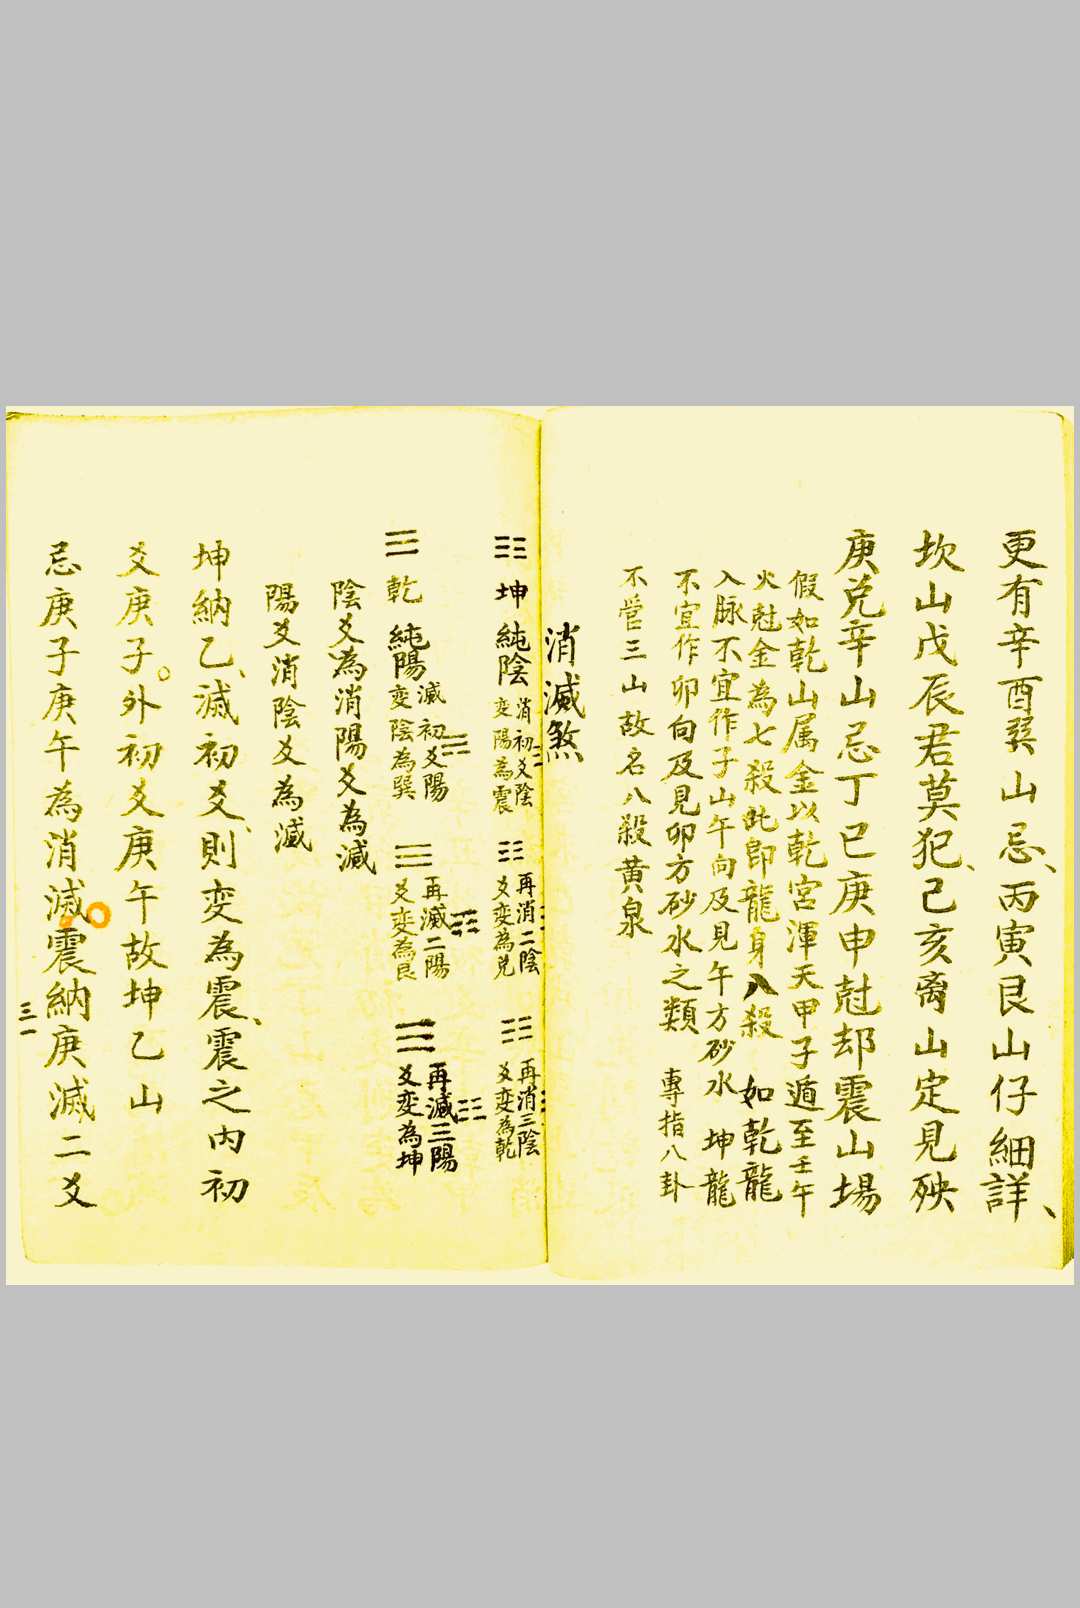 更有辛酉巽山忌、丙寅艮山仔細詳、
坎山戊辰君莫犯、己亥离山定見殃
庚兌辛山忌丁巳庚申尅却震山場
假如乾山属金以乾宮渾天甲子遁至壬午
火尅金為七殺此卽龍身八殺 如乾龍
入脉不宜作子山午向及見午方砂水 坤龍
不宜作卯向及見卯方砂水之類 專指八卦
不管三山故名八殺黄泉
消滅煞
☷ 坤 純陰 消初爻陰
変陽為震 ☳ 再消二陰
爻変為兌 ☱ 再消三陰
爻変為乾
☰ 乾 純陽 減初爻陽
変陰為巽 ☴ 再減二陽
爻変為艮 ☶ 再減三陽
爻変為坤 ☷
陰爻為消陽爻為減
陽爻消陰爻為減
坤納乙、滅初爻、則変為震、震之内初
爻庚子。外初爻庚午故坤乙山
忌庚子庚午為消滅○震納庚滅二爻
三一